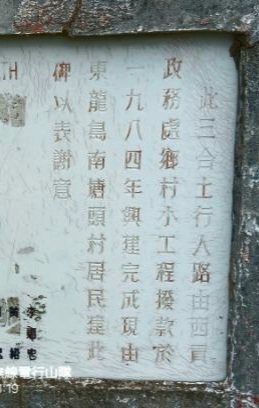 此三合土行人路由西貢
政務處鄉村小工程撥款於
一九八四年興建完成現由
東龍島南塘頭村居民筆此
碑以表謝意
TH
行山隊